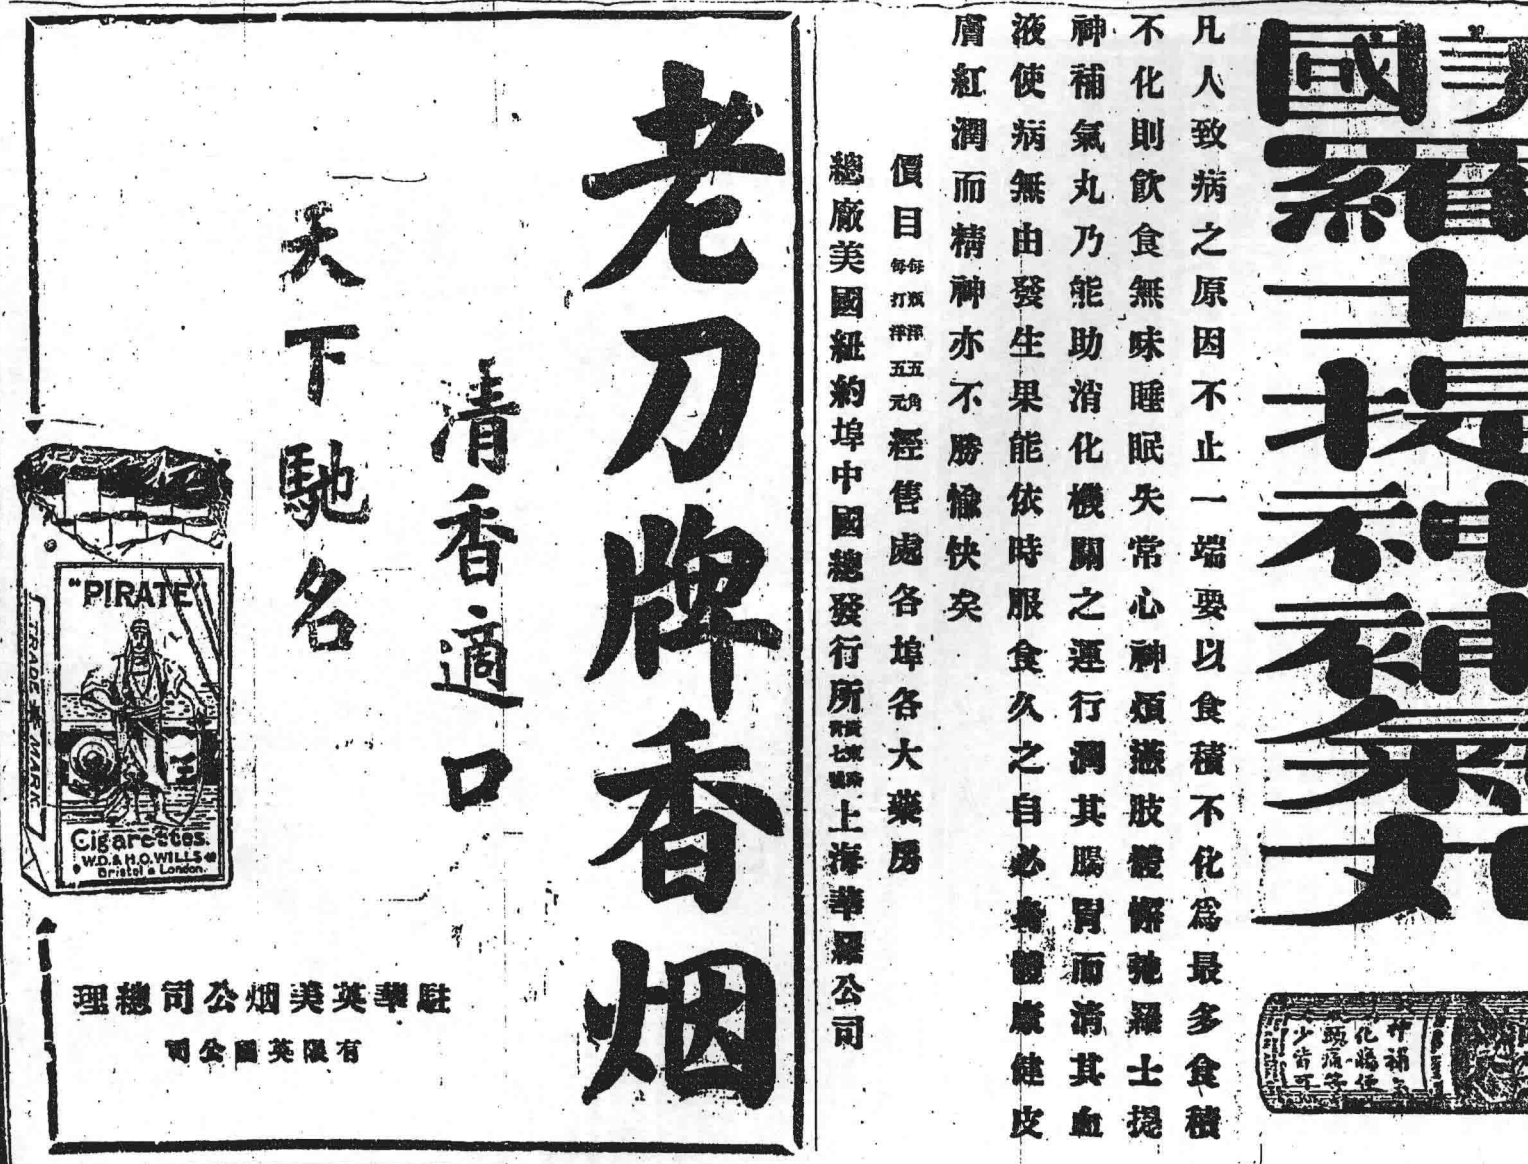 國
羅士提神補氣丸
凡人致病之原因不止一端要以食積不化為最多食積
不化則飲食無味睡眠失常心神煩懣肢體懈弛羅士提
神補氣丸乃能助消化機關之運行潤其腸胃而清其血
液使病無由發生果能依時服食久之自必身體康健皮
膚紅潤而精神亦不勝愉快矣
價目
每瓶洋五角
每打洋五元
經售處各埠各大藥房
總廠美國紐約埠中國總發行所
上海華羅公司
神補
化腸
頭痛等
少皆可
老刀牌香烟
清香適口
天下馳名
"PIRATE"
TRADE MARK
Cigarettes.
W.D. & H.O. WILLS
Bristol & London.
駐華英美烟公司總理
有限英國公司